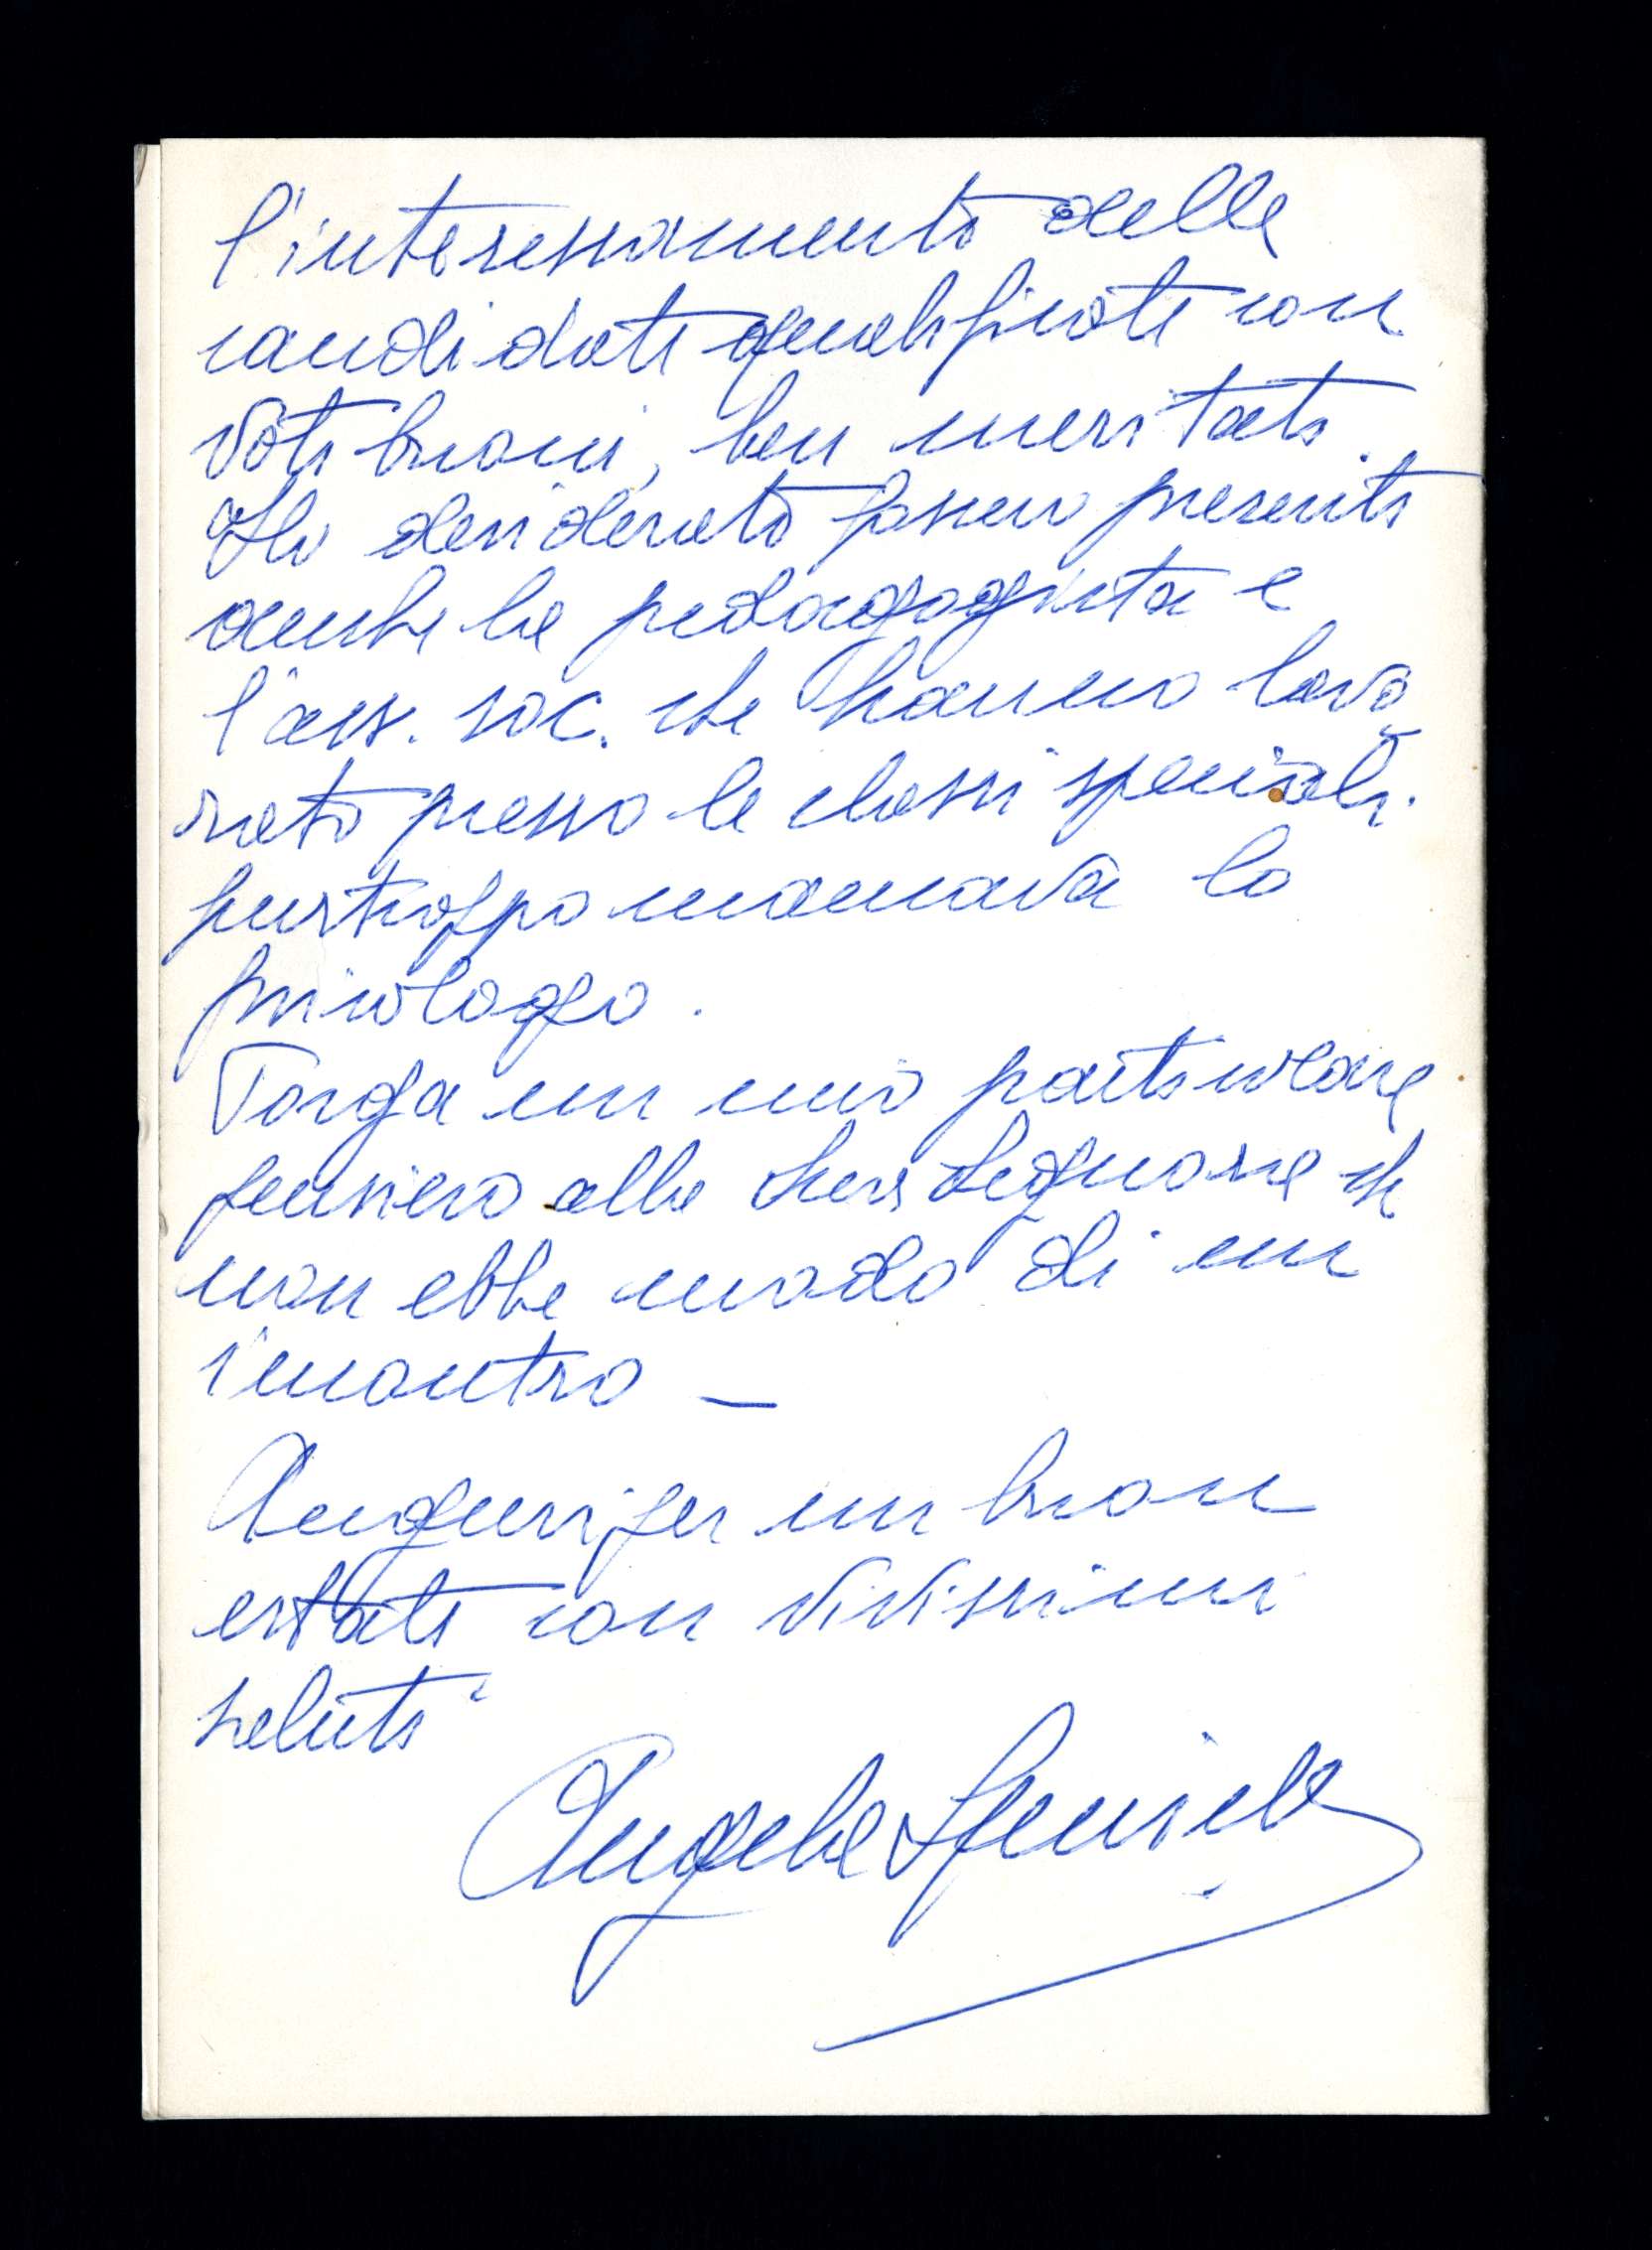 l'interessamento delle
candidate qualificate con
voti buoni, ben meritati.
Ho desiderato fossero presenti
anche la pedagogista e
l'ass. soc. che hanno lavo
rato presso le classi speciali.
purtroppo mancava lo
psicologo.
Porga un mio particolare
pensiero alla Sua Signora che
non ebbe modo di un
incontro —
Auguri per un buon
estate con vivissimi
saluti
Angela